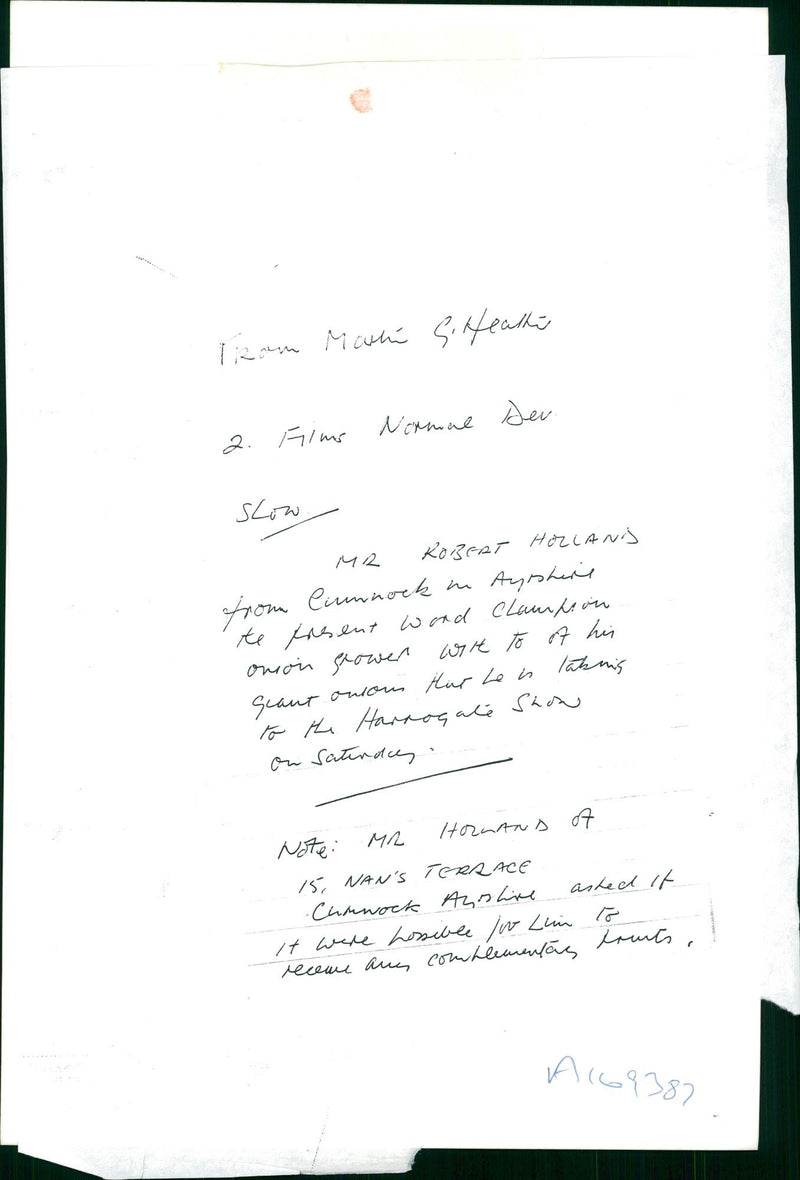 From Martin G. Heather
2. Films Normal Dev.
SLOW
MR ROBERT HOLLAND
from Cumnock in Ayrshire
the present World Champion
onion grower with to of his
giant onions that he is taking
to the Harrogate Show
on Saturday.
Note: MR HOLLAND of
15, NAN'S TERRACE
Cumnock Ayrshire asked if
it were possible for him to
receive any complementary prints.
A169387